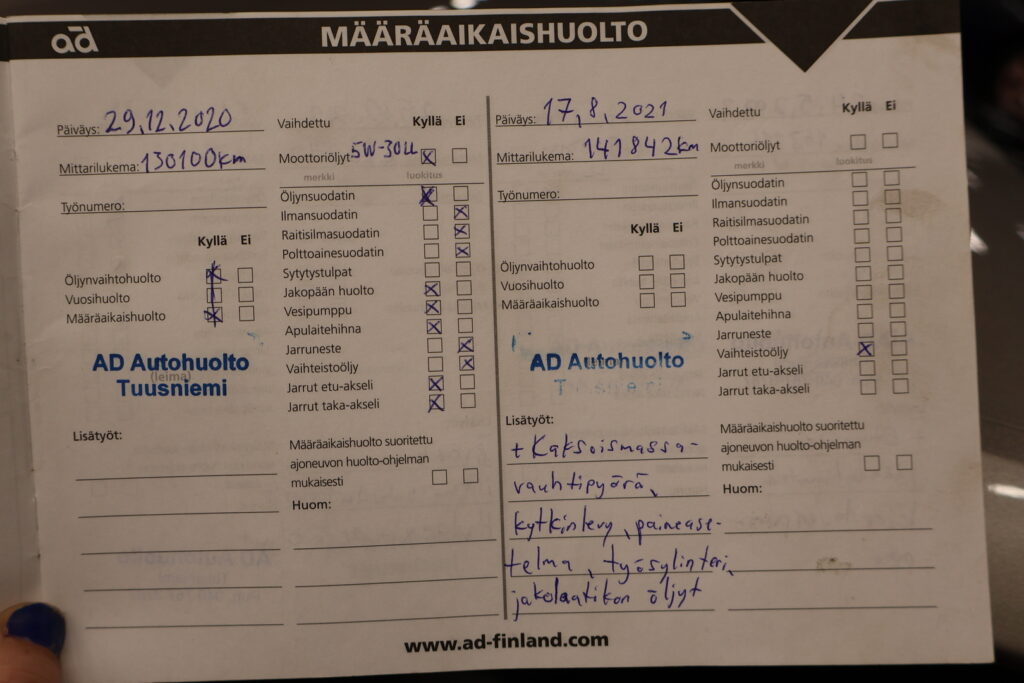 ad
MÄÄRÄAIKAISHUOLTO
Päiväys: 29.12.2020
Mittarilukema: 130100km
Työnumero:
Kyllä Ei
Öljynvaihtohuolto
Vuosihuolto
Määräaikaishuolto
AD Autohuolto
(leima)
Tuusniemi
Lisätyöt:
Vaihdettu Kyllä Ei
Moottoriöljyt 5W-30LL
merkki luokitus
Öljynsuodatin
Ilmansuodatin
Raitisilmasuodatin
Polttoainesuodatin
Sytytystulpat
Jakopään huolto
Vesipumppu
Apulaitehihna
Jarruneste
Vaihteistoöljy
Jarrut etu-akseli
Jarrut taka-akseli
Määräaikaishuolto suoritettu
ajoneuvon huolto-ohjelman
mukaisesti
Huom:
Päiväys: 17,8,2021
Mittarilukema: 141842km
Työnumero:
Kyllä Ei
Öljynvaihtohuolto
Vuosihuolto
Määräaikaishuolto
AD Autohuolto
Tuusniemi
Lisätyöt:
+ Kaksoismassa-
vauhtipyörä,
kytkinlevy, painease-
telma, työsylinteri,
jakolaatikon öljyt
Vaihdettu Kyllä Ei
Moottoriöljyt
merkki luokitus
Öljynsuodatin
Ilmansuodatin
Raitisilmasuodatin
Polttoainesuodatin
Sytytystulpat
Jakopään huolto
Vesipumppu
Apulaitehihna
Jarruneste
Vaihteistoöljy
Jarrut etu-akseli
Jarrut taka-akseli
Määräaikaishuolto suoritettu
ajoneuvon huolto-ohjelman
mukaisesti
Huom:
www.ad-finland.com